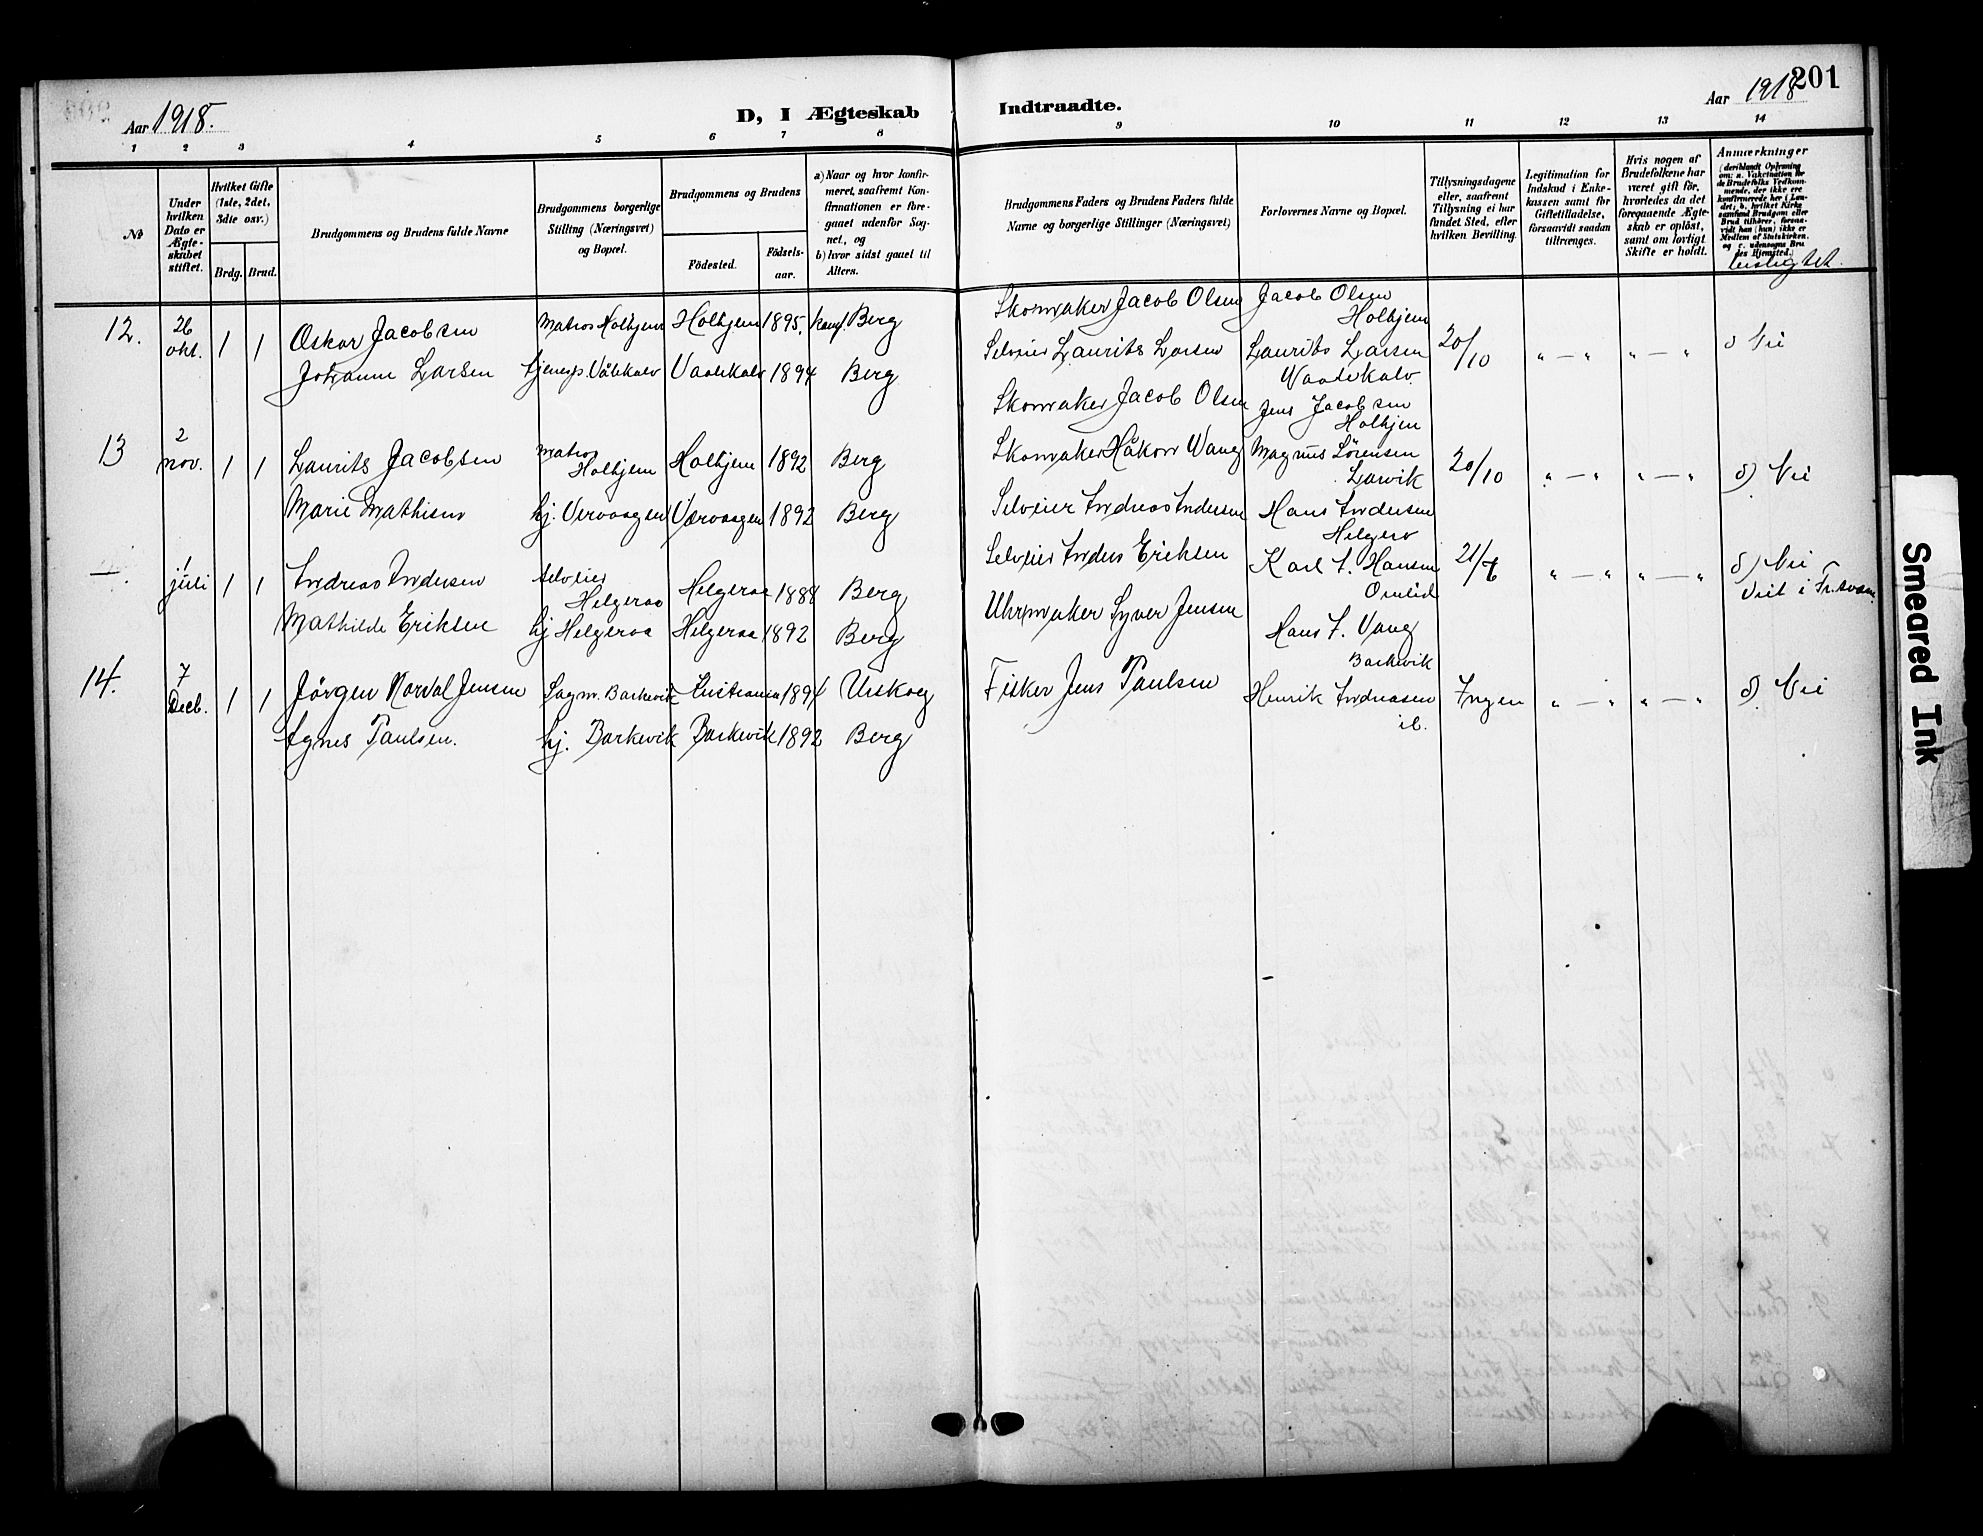 201
Aar 1918.
D, I Ægteskab Indtraadte.
Aar 1918
1 2 3 4 5 6 7 8 9 10 11 12 13 14
№
Under hvilken Dato er Ægteskabet stiftet.
Hvilket Gifte (1ste, 2det, 3die osv.)
Brdg. Brud.
Brudgommens og Brudens fulde Navne
Brudgommens borgerlige Stilling (Næringsvei) og Bopæl.
Brudgommens og Brudens
Födested.
Födselsaar.
a) Naar og hvor konfirmeret, saafremt Konfirmationen er foregaaet udenfor Sognet, og
b) hvor sidst gaaet til Alters.
Brudgommens Faders og Brudens Faders fulde Navne og borgerlige Stillinger (Næringsvei)
Forlovernes Navne og Bopæl.
Tillysningsdagene eller, saafremt Tillysning ei har fundet Sted, efter hvilken Bevilling.
Legitimation for Indskud i Enkekassen samt for Giftetilladelse, forsaavidt saadan tiltrænges.
Hvis nogen af Brudefolkene har været gift før, hvorledes da det foregaaende Ægteskab er opløst, samt om lovligt Skifte er holdt.
Anmærkninger
(deriblandt Oplysning om: a. Vakcination for de Brudefolks Vedkommende, der ikke ere konfirmerede her i Landet; b. hvilket Kirkesamfund Brudgom eller Brud tilhører, forsaavidt han (hun) ikke er Medlem af Statskirken, og c. udensogns Brudes Hjemsted.)
beslegtet.
12. 26 okt. 1 1 Oskar Jacobsen Matros Holtjem Holtjem 1895. konf. Berg Skomaker Jacob Olsen Jacob Olsen Holtjem 20/10 " — " " — " Nei
Johanne Larsen tjenerp. Vålekalv Vaalekalv 1894 Berg Selveier Laurits Larsen Laurits Larsen Vaalekalv
13 2 nov. 1 1 Laurits Jacobsen Matros Holtjem Holtjem 1892 Berg Skomaker Jacob Olsen Jens Jacobsen Holtjem 20/10 " — " " — " d) Nei
Marie Mathisen hj. Vervaagen Værvaagen 1892 Berg Skomaker Håkon Wang Magnus Sørensen Larvik
—. 1 juli 1 1 Andreas Andersen selveier Helgeroa Helgeroa 1888 Berg Selveier Andreas Andersen Hans Andersen Helgero 21/6 " — " " — " d) Nei
Mathilde Eriksen hj Helgeroa Helgeroa 1892 Berg Selveier Anders Eriksen Karl A. Hansen Omlid Viet i Fr.svärn
14. 7 Decb. 1 1 Jörgen Norval Jensen Sagm. Barkevik Kristiania 1894 Uiskog Uhrmaker Syver Jensen Hans A. Vang Barkevik Ingen " — " " — " d) Nei
Agnes Paulsen. hj. Barkevik Barkevik 1892 Berg Fisker Jens Paulsen Henrik Andreasen ib.
Smeared Ink